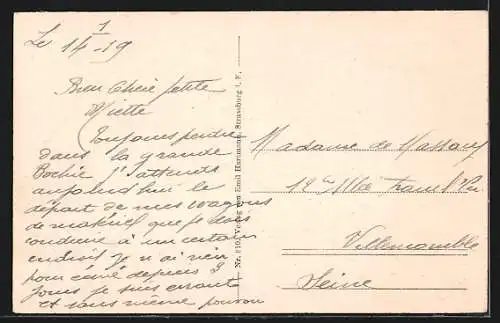 Le 14 1 - 19
Bien Chère petite
Miette
Toujours perdu
dans la grande
Bochie j'attends
aujourd'hui le
départ de mes wagons
de matériel que je dois
conduire à un certain
endroit je n ai rien
pour cela depuis 9
jours je suis errant
et sans même pouvoir
Nr. Verlag von Emil Hartmann, Strassburg i. E.
Madame de
12
Villemomble
Seine